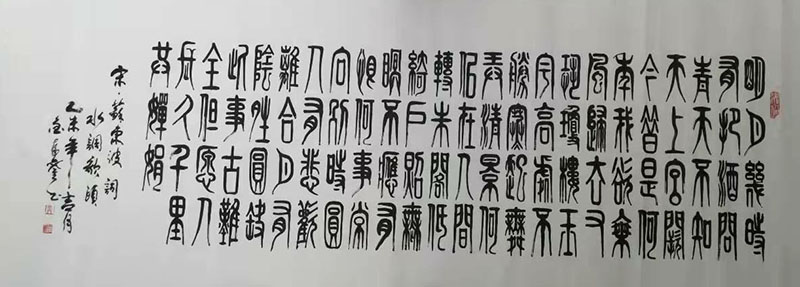 明月幾時
有把酒問
青天不知
天上宮闕
今昔是何
年我欲乘
風歸去又
恐瓊樓玉
宇高處不
勝寒起舞
弄清景何
佀在人間
轉朱閣低
綺戶照無
眠不應有
恨何事常
向別時圓
人有悲歡
離合月有
陰晴圓缺
此事古難
全但愿人
長久千里
共嬋娟
宋蘇東波詞
水調歌頭
乙未年